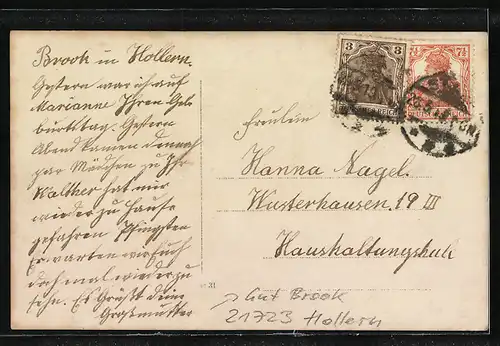 Brook in Hollern.
Gestern war ich auf
Marianne Ihren Ge-
burtstag. Gestern
Abend kamen dennoch
par Mädchen zu Ihr
Walther hat mir
wieder zu Hause
gefahren Pfingsten
Erwarten wir Euch
doch mal wieder zu
sehn. Es Grüßt deine
Großmutter
3
7½
Fräulein
Hanna Nagel.
Wusterhausen 19 III
Haushaltungschule
31
→ Gut Brook
21723 Hollern